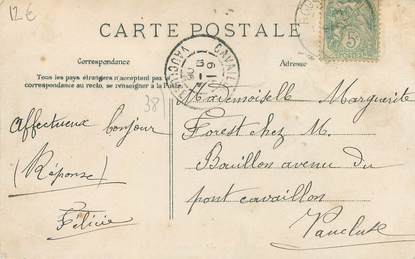 12€
CARTE POSTALE
Correspondance
Tous les pays étrangers n'acceptent pas la
correspondance au recto, se renseigner à la Poste
Adresse
38
CAVAILLON
VAUCLUSE
5c
Affectueux bonjour
(Réponse)
Félicie
Mademoiselle Marguerite
Forest chez M.
Bouillon avenue du
pont cavaillon
Vaucluse